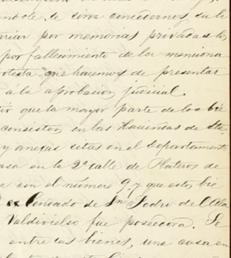 ndole, se sirva concedernos su li
por memorias privadas l
por fallecimiento de la menciona
protesta que hacemos de presentar
á la aprobacion judicial.
tir que la mayor parte de los bie
consisten en las Haciendas de
y anecsas citas en el departamento
asa en la 2ª calle de Plateros de
con el número 9, y que estos bie
ex Condado de Sn Pedro del Ala
Valdivielso fue poseedora. Se
entre los bienes, una casa en